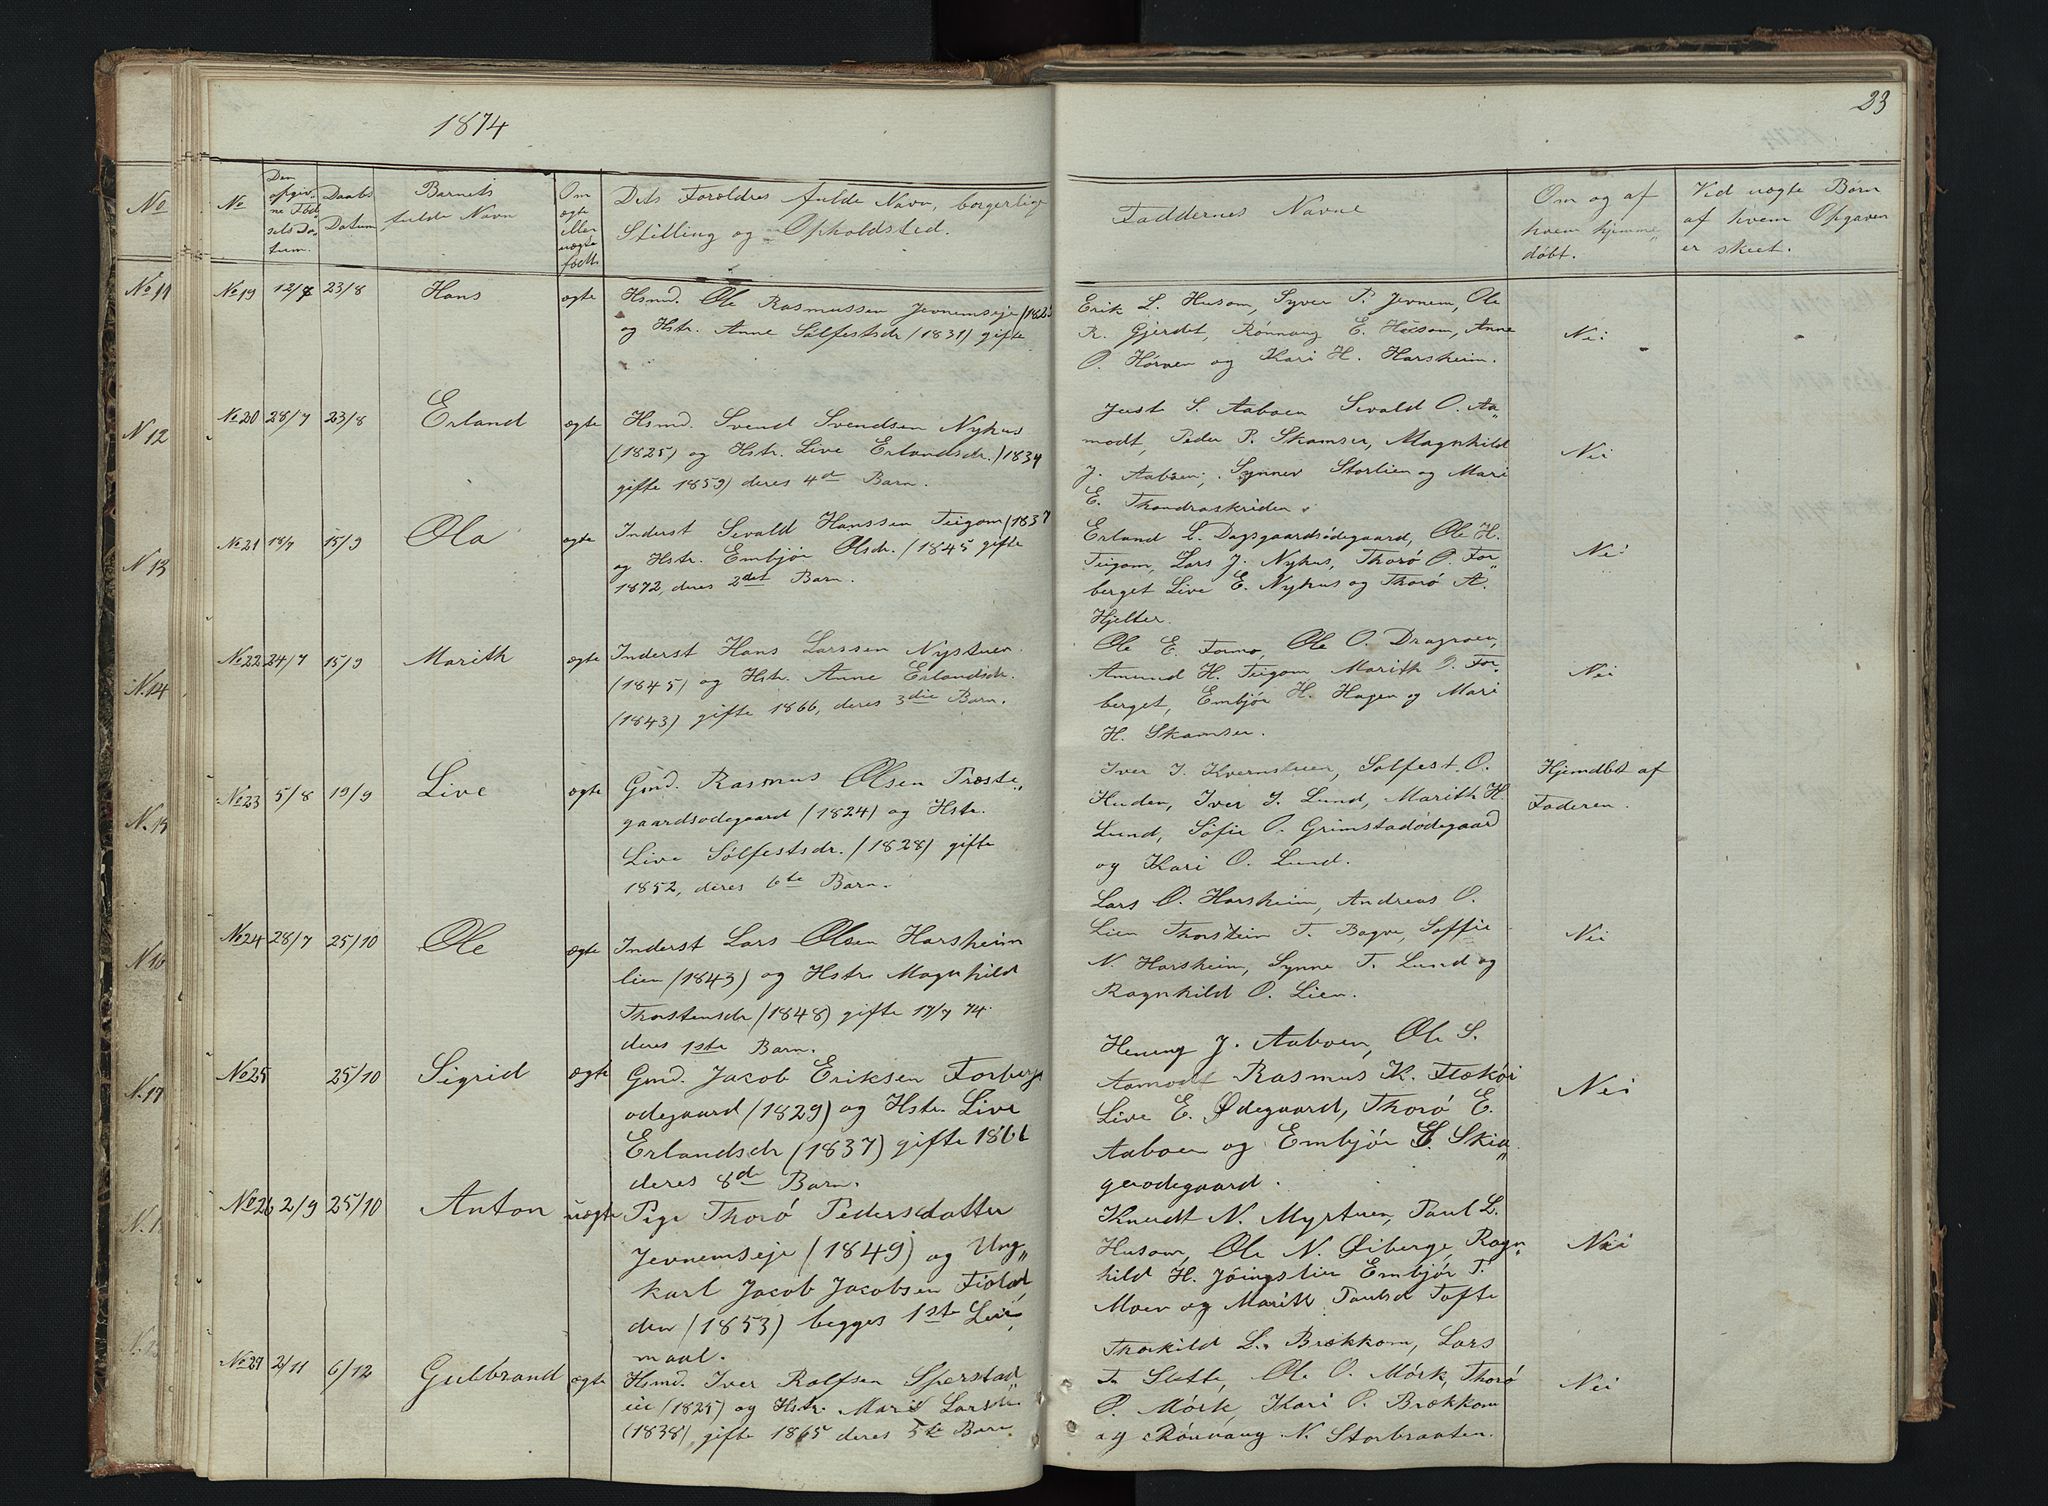 1874
23
No
No
Den opgivne Fødselsdatum.
Daabs Datum
Barnets fulde Navn
Om ægte eller uægte født.
Dets Forældres fulde Navn, borgerlige
Stilling og Opholdsted.
Faddernes Navne
Om og af
hvem hjemme„
døbt.
Ved uægte Børn
af hvem Opgaven
er skeet.
No 11
No 19 12/7 23/8 Hans ægte
Hsmd. Ole Rasmussen Jevnemseje (182
og Hstr. Anne Sølfestsdr (1831) gifte
Erik L. Husom, Syver P. Jevnem, Ole
R. Gjerdet, Rønnaug E. Husom, Anne
O. Hørven og Kari H. Harsheim.
Nei
N 12
No 20 28/7 23/8 Erland ægte
Hsmd. Svend Svendsen Nyhus
(1825) og Hstr. Live Erlandsdr. (1834
gifte 1859) deres 4de Barn.
Just S. Aaboen Sevald O. Aa„
modt, Peder P. Skamser, Magnhild
J. Aaboen, Synnev Storlien og Mari
E. Thondraskriden.
Nei
N 13
No 21 18/7 15/9 Ola ægte
Inderst Sevald Hanssen Teigom (1837
og Hstr. Embjør Olsdr. (1845 gifte
1872, deres 2det Barn.
Erland L. Dagsgaardsødegaard, Ole H.
Teigom, Lars J. Nyhus, Thorø O. For„
berget Live E. Nyhus og Thorø A.
Hjelter.
Nei
N. 14
No 22 24/7 15/9 Marith ægte
Inderst Hans Larssen Nystuen
(1845) og Hstr. Anne Erlandsdr.
(1843) gifte 1866, deres 3die Barn.
Ole E. Formo, Ole O. Dragroen,
Amund H. Teigom Marith O. For„
berget, Embjør H. Hagen og Mari
H. Skamser.
Nei
N. 15
No 23 5/8 19/9 Live ægte
Gmd. Rasmus Olsen Træste„
gaardsødegaard (1824) og Hstr.
Live Sølfestsdr. (1828) gifte
1852, deres 6te Barn.
Iver I. Kvernstuen, Sølfest O.
Huden, Iver I. Lund, Marith H.
Lund, Sofie O. Grimstadødegaard
og Kari O. Lund.
Hjemdøbt af
Faderen.
N 16
No 24 28/7 25/10 Ole ægte
Inderst Lars Olsen Harsheim
lien (1843) og Hstr. Magnhild
Thorstensdr (1848) gifte 17/7 74.
deres 1ste Barn.
Lars O. Harsheim, Andreas O.
Lien Thorstein T. Bagve, Soffie
N. Harsheim, Synne T. Lund og
Ragnhild O. Lien.
Nei
N. 17
No 25 25/10 Sigrid ægte
Gmd. Jacob Eriksen Forbergs
ødegaard (1829) og Hstr. Live
Erlandsdr (1837) gifte 1861
deres 8de Barn.
Hening J. Aaboen, Ole S.
Aamodt Rasmus K. Flækøi
Live E. Ødegaard, Thorø E.
Aaboen og Embjør E. Skia„
gerødegaard.
Nei
N. 1
No 26 2/9 25/10 Anton uægte
Pige Thorø Pedersdatter
Jevnemseje (1849) og Ung„
karl Jacob Jacobsen
den (1853) begges 1ste Leier
maal.
Knudt N. Myrtuen, Paul L.
Husom, Ole N. Øiberge, Ragn„
hild H. Embjør T.
Moen og Marith Paulsd Tofte
Nei
No 27 2/11 6/12 Gulbrand ægte
Hsmd. Iver Rolfsen
(1825) og Hstr. Mari Larsdr
(1838), gifte 1865 deres 5te Barn
Thorkild L. Brækkom, Lars
T. Slette, Ole O. Mørk, Thorø
O. Mørk, Kari O. Brækkom
og Rønnaug N. Storbraaten.
Nei